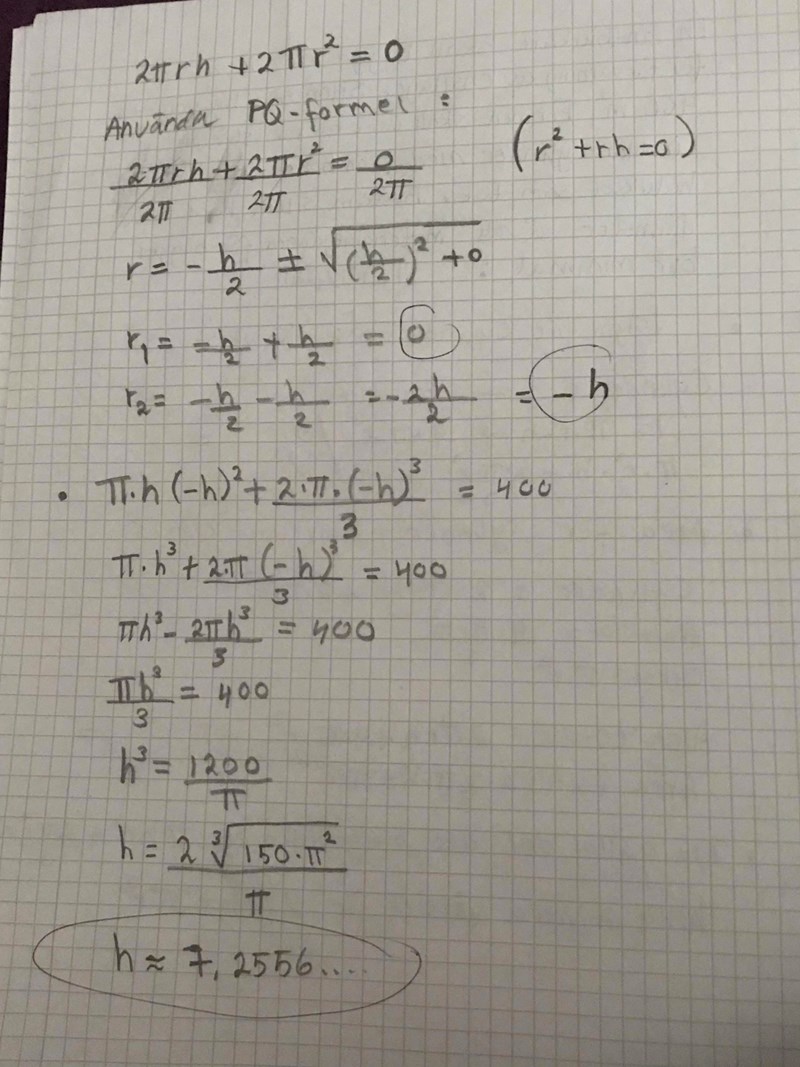 2πrh + 2πr² = 0
Använda PQ-formel :
2πrh/2π + 2πr²/2π = 0/2π (r² + rh = 0)
r = -h/2 ± √((h/2)² + 0)
r₁ = -h/2 + h/2 = 0
r₂ = -h/2 - h/2 = -2h/2 = -h
• π·h(-h)² + 2·π·(-h)³/3 = 400
π·h³ + 2·π(-h)³/3 = 400
πh³ - 2πh³/3 = 400
πh³/3 = 400
h³ = 1200/π
h = 2 ∛(150·π²)/π
h ≈ 7,2556....